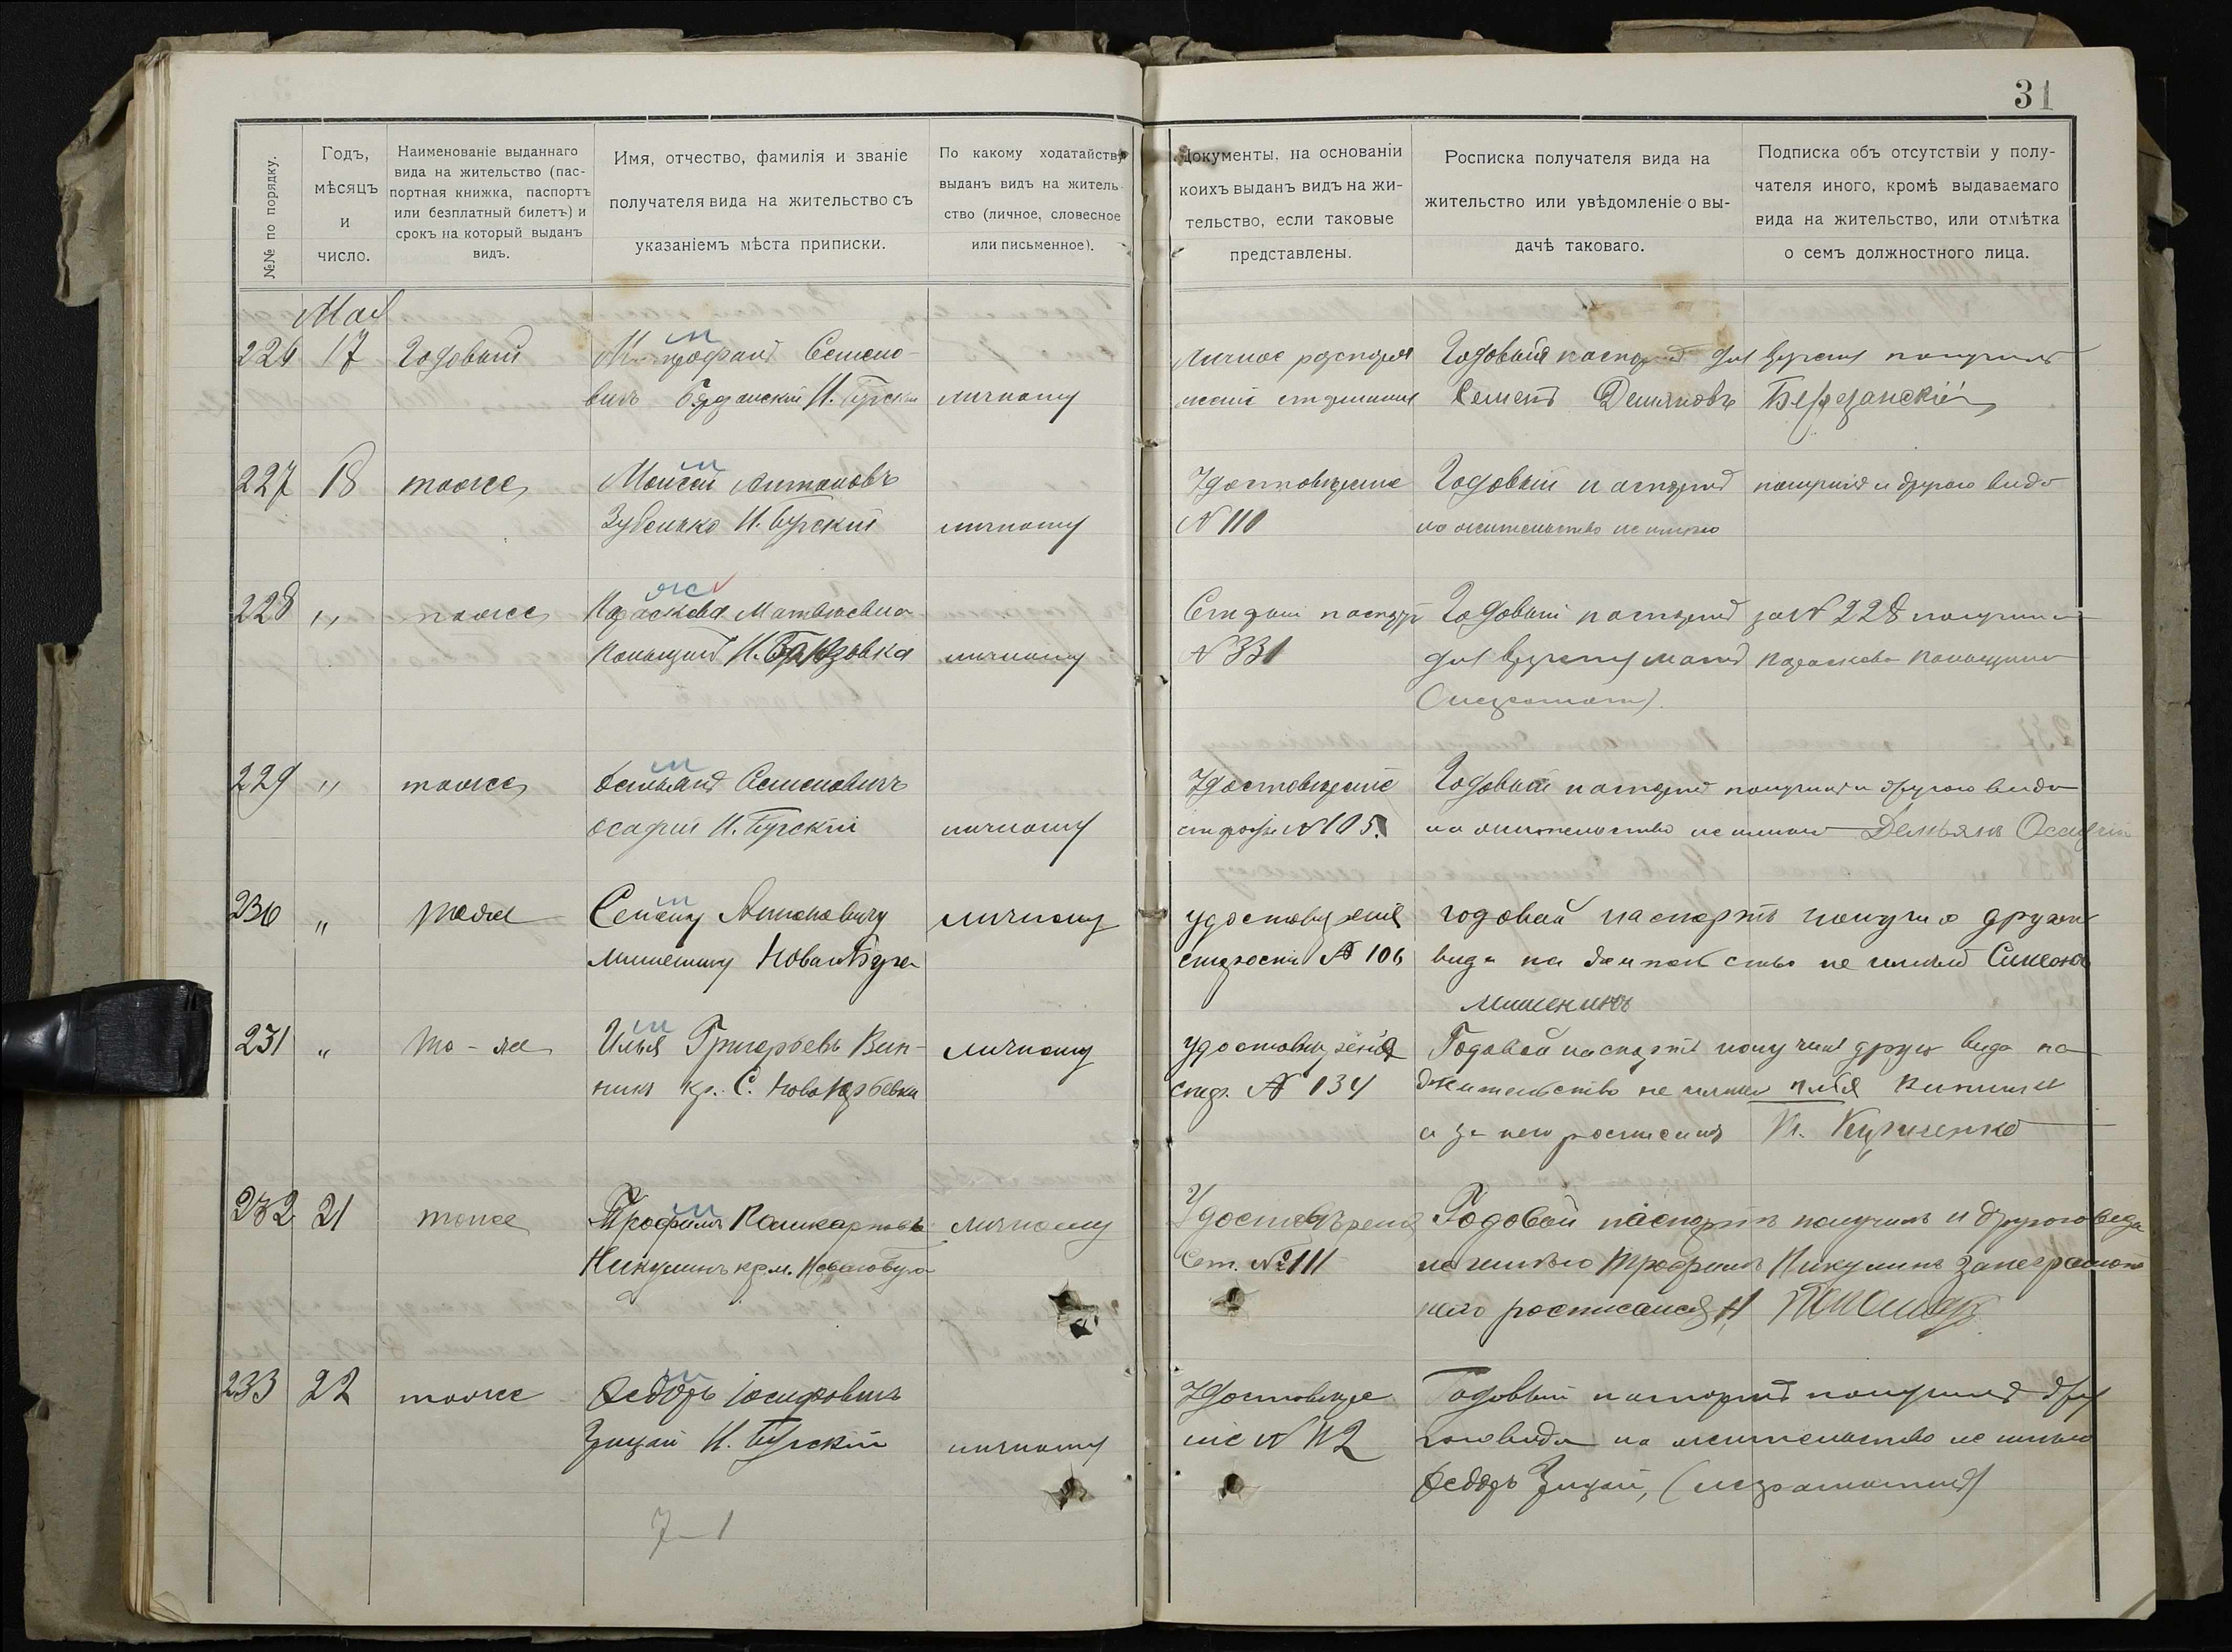 31
№№ по порядку.
Годъ,
мѣсяцъ
и
число.
Наименованіе выданнаго
вида на жительство (пас-
портная книжка, паспортъ
или безплатный билетъ) и
срокъ на который выданъ
видъ.
Имя, отчество, фамилія и званіе
получателя вида на жительство съ
указаніемъ мѣста приписки.
По какому ходатайству
выданъ видъ на житель-
ство (личное, словесное
или письменное).
Документы, на основаніи
коихъ выданъ видъ на жи-
тельство, если таковые
представлены.
Росписка получателя вида на
жительство или увѣдомленіе о вы-
дачѣ таковаго.
Подписка объ отсутствіи у полу-
чателя иного, кромѣ выдаваемаго
вида на жительство, или отмѣтка
о семъ должностного лица.
Мая
226 17 Годовый Митрофанъ Семено-
вичъ Н. Бугскій личному
Личное
Годовый паспортъ для получилъ
Семенъ Демяновъ Березанскій
227 18 тоже Моисей Антоновъ
Зубенько Н. Бугскій личному
Удостовѣреніе
N 110
Годовый паспортъ получилъ и другого вида
на жительство не имѣю
228 " тоже Параскева Матвѣевна
Н. личному
Старый паспортъ
N 331
Годовый паспортъ за N 228 получила
для Параскева
229 " тоже Демьянъ Семеновичъ
Осадчій Н. Бугскій личному
Удостовѣреніе
старосты N 105.
Годовый паспортъ получилъ и другого вида
на жительство не имѣю Демьянъ Осадчій
230 " тоже Семену Антоновичу личному
Мишенину Новый Буга
удостовѣреніе
старосты № 106
годовой паспортъ получилъ другого
вида на жительство не имѣю Симеонъ
Мишенинъ
231 " то-же Илья Григорьевъ Вин- личному
никъ кр. С. Ново Юрьевки
удостовѣренія
стар. № 134
Годовой паспортъ получилъ друго вида на
жительство не имѣю Илья Винникъ
а за него росписался
232 21 тоже Трофимъ Поликарповъ личному
Никулинъ кр. м. Новаго Буга
Удостовѣренія
Ст. №111
Годовой паспортъ получилъ и другого вида
не имѣю Трофимъ Никулинъ за неграмот
наго росписался
233 22 тоже Федоръ Іосифовичъ
Грицай Н. Бугскій личному
Удостовѣре
ніе N 112
Годовый паспортъ получилъ дру
гого вида на жительство не имѣю
Федоръ Грицай, (неграмотный)
7-1